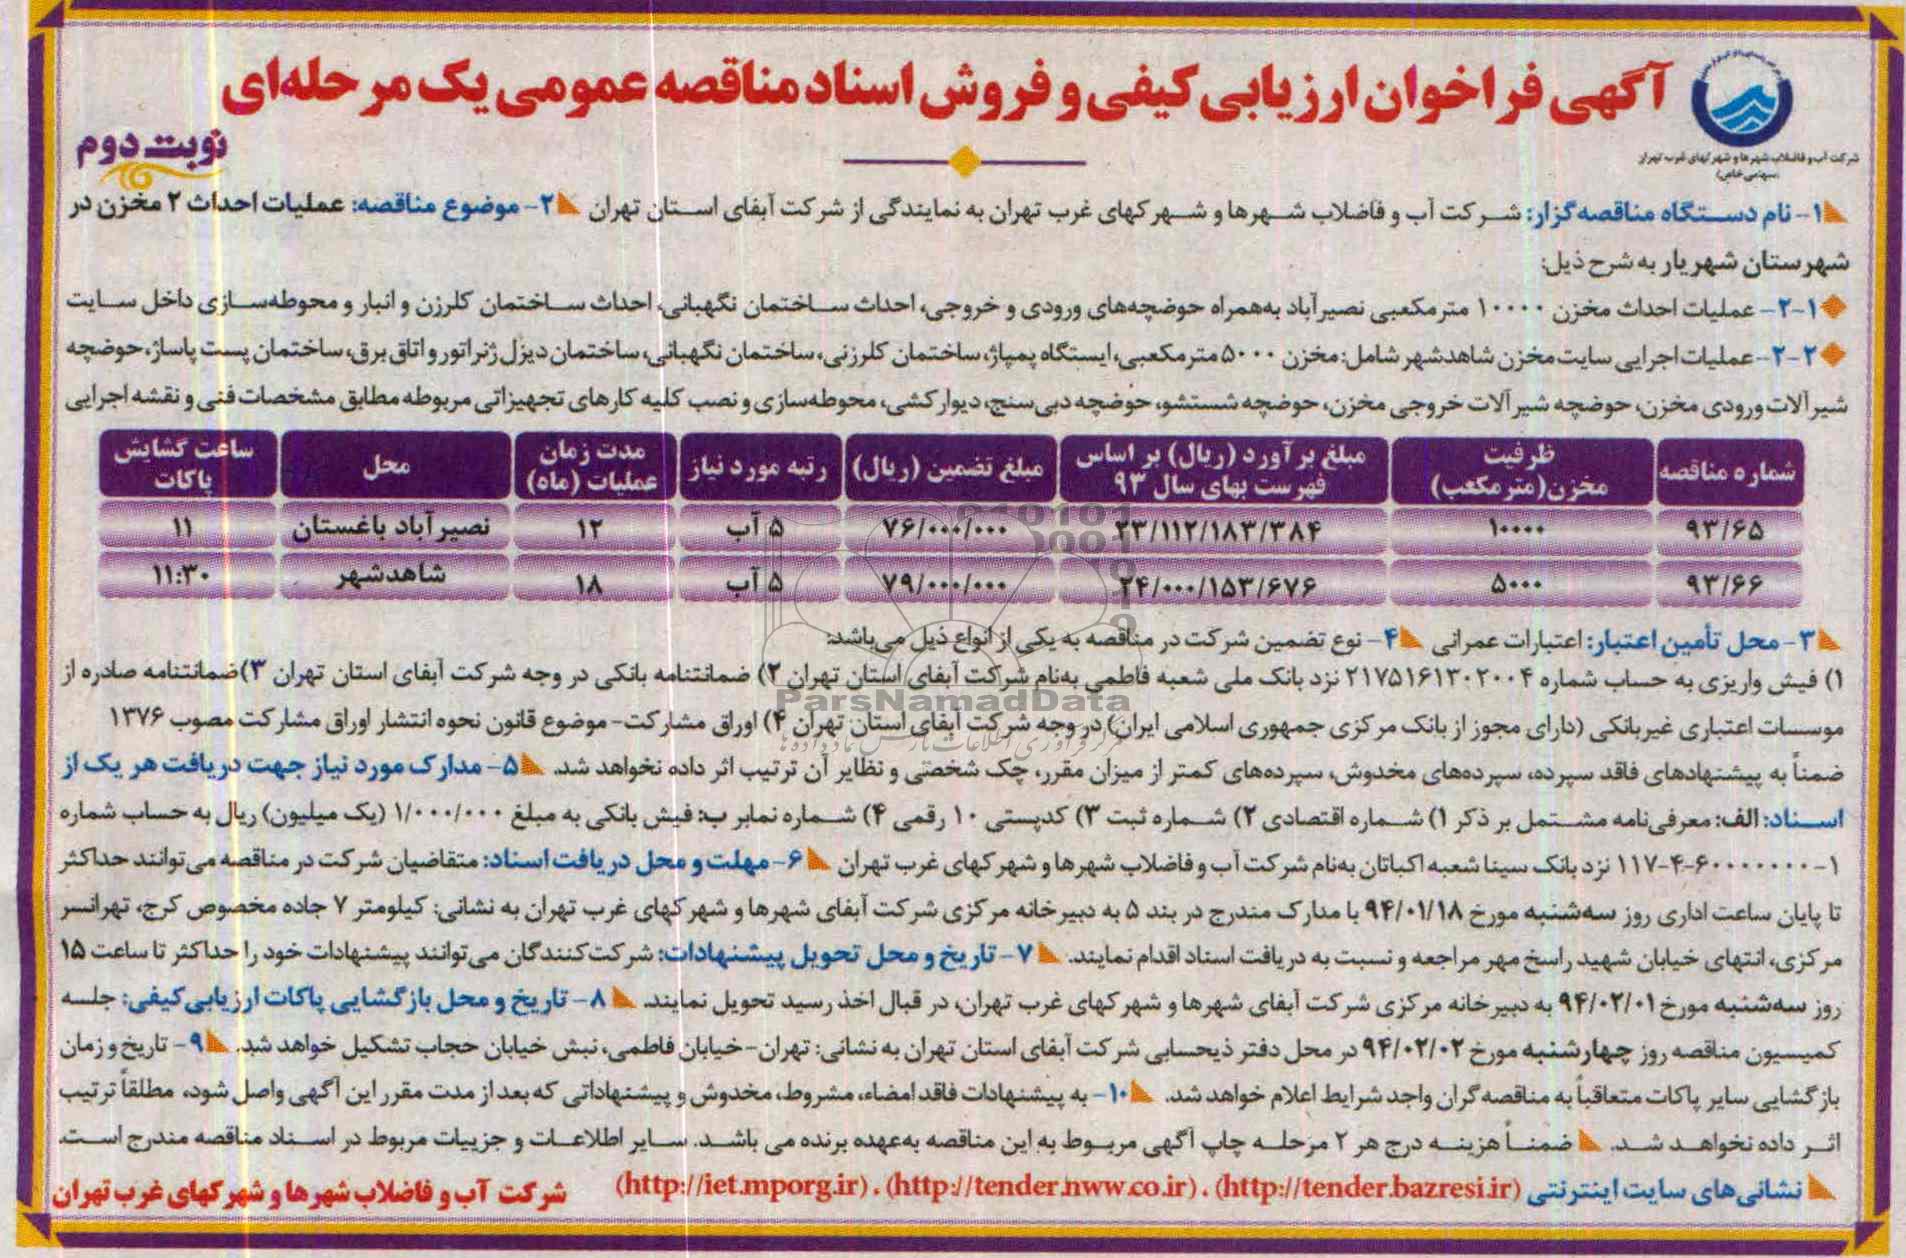 آگهی فراخوان ارزیابی کیفی و فروش اسناد مناقصه عمومی یک مرحله‌ای
نوبت دوم
شرکت آب و فاضلاب شهرها و شهرکهای غرب تهران
(سهامی خاص)
۱- نام دستگاه مناقصه‌گزار: شرکت آب و فاضلاب شهرها و شهرکهای غرب تهران به نمایندگی از شرکت آبفای استان تهران ۲- موضوع مناقصه: عملیات احداث ۲ مخزن در
شهرستان شهریار به شرح ذیل:
۲-۱- عملیات احداث مخزن ۱۰۰۰۰ مترمکعبی نصیرآباد به‌همراه حوضچه‌های ورودی و خروجی، احداث ساختمان نگهبانی، احداث ساختمان کلرزن و انبار و محوطه‌سازی داخل سایت
۲-۲- عملیات اجرایی سایت مخزن شاهدشهر شامل: مخزن ۵۰۰۰ مترمکعبی، ایستگاه پمپاژ، ساختمان کلرزنی، ساختمان نگهبانی، ساختمان دیزل ژنراتور و اتاق برق، ساختمان پست پاساژ، حوضچه
شیرآلات ورودی مخزن، حوضچه شیرآلات خروجی مخزن، حوضچه شستشو، حوضچه دبی‌سنج، دیوارکشی، محوطه‌سازی و نصب کلیه کارهای تجهیزاتی مربوطه مطابق مشخصات فنی و نقشه اجرایی
شماره مناقصه | ظرفیت مخزن (مترمکعب) | مبلغ برآورد (ریال) بر اساس فهرست بهای سال ۹۳ | مبلغ تضمین (ریال) | رتبه مورد نیاز | مدت زمان عملیات (ماه) | محل | ساعت گشایش پاکات
۹۳/۶۵ | ۱۰۰۰۰ | ۲۳/۱۱۲/۱۸۳/۳۸۴ | ۷۶/۰۰۰/۰۰۰ | ۵ آب | ۱۲ | نصیرآباد باغستان | ۱۱
۹۳/۶۶ | ۵۰۰۰ | ۲۴/۰۰۰/۱۵۳/۶۷۶ | ۷۹/۰۰۰/۰۰۰ | ۵ آب | ۱۸ | شاهدشهر | ۱۱:۳۰
۳- محل تأمین اعتبار: اعتبارات عمرانی ۴- نوع تضمین شرکت در مناقصه به یکی از انواع ذیل می‌باشد:
۱) فیش واریزی به حساب شماره ۲۱۷۵۱۶۱۳۰۲۰۰۴ نزد بانک ملی شعبه فاطمی به‌نام شرکت آبفای استان تهران ۲) ضمانتنامه بانکی در وجه شرکت آبفای استان تهران ۳) ضمانتنامه صادره از
موسسات اعتباری غیربانکی (دارای مجوز از بانک مرکزی جمهوری اسلامی ایران) در وجه شرکت آبفای استان تهران ۴) اوراق مشارکت- موضوع قانون نحوه انتشار اوراق مشارکت مصوب ۱۳۷۶
ضمناً به پیشنهادهای فاقد سپرده، سپرده‌های مخدوش، سپرده‌های کمتر از میزان مقرر، چک شخصی و نظایر آن ترتیب اثر داده نخواهد شد. ۵- مدارک مورد نیاز جهت دریافت هر یک از
اسناد: الف: معرفی‌نامه مشتمل بر ذکر ۱) شماره اقتصادی ۲) شماره ثبت ۳) کدپستی ۱۰ رقمی ۴) شماره نمابر ب: فیش بانکی به مبلغ ۱/۰۰۰/۰۰۰ (یک میلیون) ریال به حساب شماره
۱-۶۰۰۰۰۰۰۰-۴-۱۱۷ نزد بانک سینا شعبه اکباتان به‌نام شرکت آب و فاضلاب شهرها و شهرکهای غرب تهران ۶- مهلت و محل دریافت اسناد: متقاضیان شرکت در مناقصه می‌توانند حداکثر
تا پایان ساعت اداری روز سه‌شنبه مورخ ۹۴/۰۱/۱۸ با مدارک مندرج در بند ۵ به دبیرخانه مرکزی شرکت آبفای شهرها و شهرکهای غرب تهران به نشانی: کیلومتر ۷ جاده مخصوص کرج، تهرانسر
مرکزی، انتهای خیابان شهید راسخ مهر مراجعه و نسبت به دریافت اسناد اقدام نمایند. ۷- تاریخ و محل تحویل پیشنهادات: شرکت‌کنندگان می‌توانند پیشنهادات خود را حداکثر تا ساعت ۱۵
روز سه‌شنبه مورخ ۹۴/۰۲/۰۱ به دبیرخانه مرکزی شرکت آبفای شهرها و شهرکهای غرب تهران، در قبال اخذ رسید تحویل نمایند. ۸- تاریخ و محل بازگشایی پاکات ارزیابی کیفی: جلسه
کمیسیون مناقصه روز چهارشنبه مورخ ۹۴/۰۲/۰۲ در محل دفتر ذیحسابی شرکت آبفای استان تهران به نشانی: تهران- خیابان فاطمی، نبش خیابان حجاب تشکیل خواهد شد. ۹- تاریخ و زمان
بازگشایی سایر پاکات متعاقباً به مناقصه‌گران واجد شرایط اعلام خواهد شد. ۱۰- به پیشنهادات فاقد امضاء، مشروط، مخدوش و پیشنهاداتی که بعد از مدت مقرر این آگهی واصل شود، مطلقاً ترتیب
اثر داده نخواهد شد. ضمناً هزینه درج هر ۲ مرحله چاپ آگهی مربوط به این مناقصه به‌عهده برنده می باشد. سایر اطلاعات و جزییات مربوط در اسناد مناقصه مندرج است.
نشانی‌های سایت اینترنتی (http://tender.bazresi.ir) ، (http://tender.nww.co.ir) ، (http://iet.mporg.ir)
شرکت آب و فاضلاب شهرها و شهرکهای غرب تهران
ParsNamadData